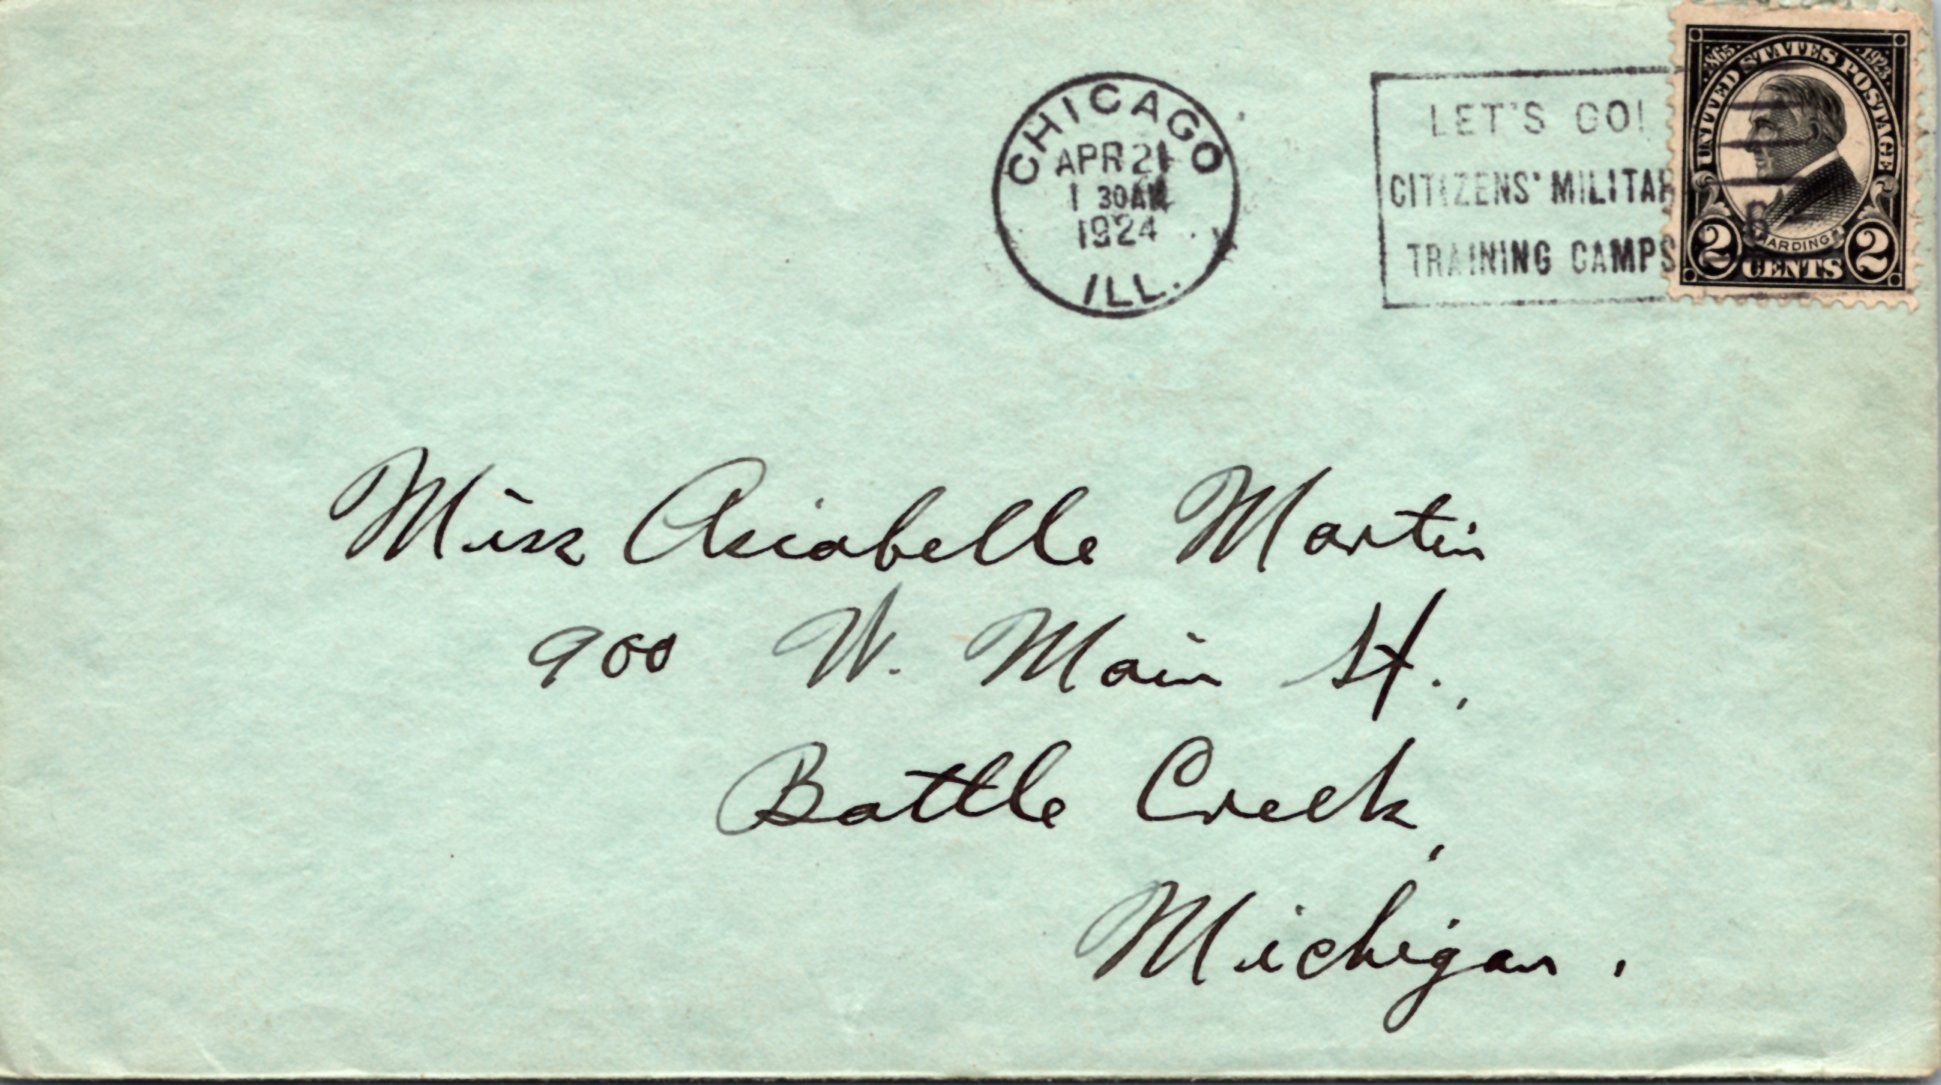 CHICAGO
APR 21
1 30 AM
1924
ILL.
LET'S GO!
CITIZENS' MILITAR
TRAINING CAMPS
1865 1923
UNITED STATES POSTAGE
HARDING
2 CENTS 2
Miss Asiabelle Martin
900 W. Main St.,
Battle Creek,
Michigan.